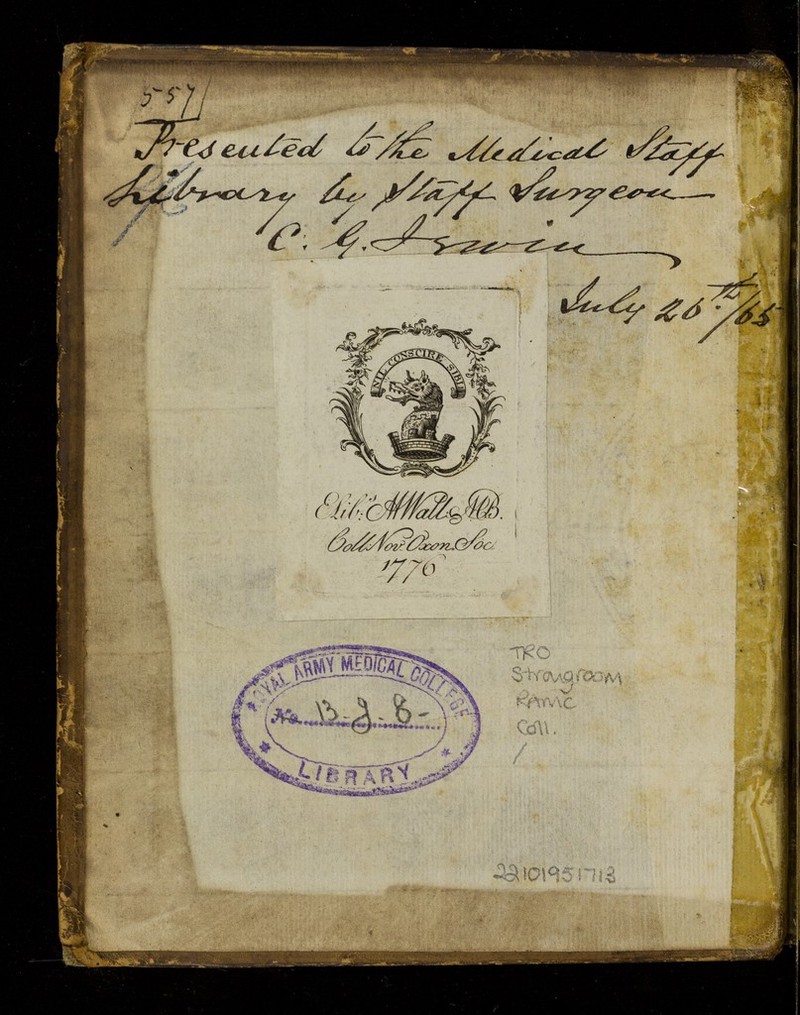 557
Presented to the Medical Staff
Library by Staff Surgeon
C. G. Irwin
July 26th/65
NIL CONSCIRE SIBI
E Lib: M Wall MB.
Coll. Nov. Oxon. Soc.
1776
ROYAL ARMY MEDICAL COLLEGE
No. 13-J-8-
LIBRARY
TRO
Strongroom
RAMC
Coll.
/
22101951713